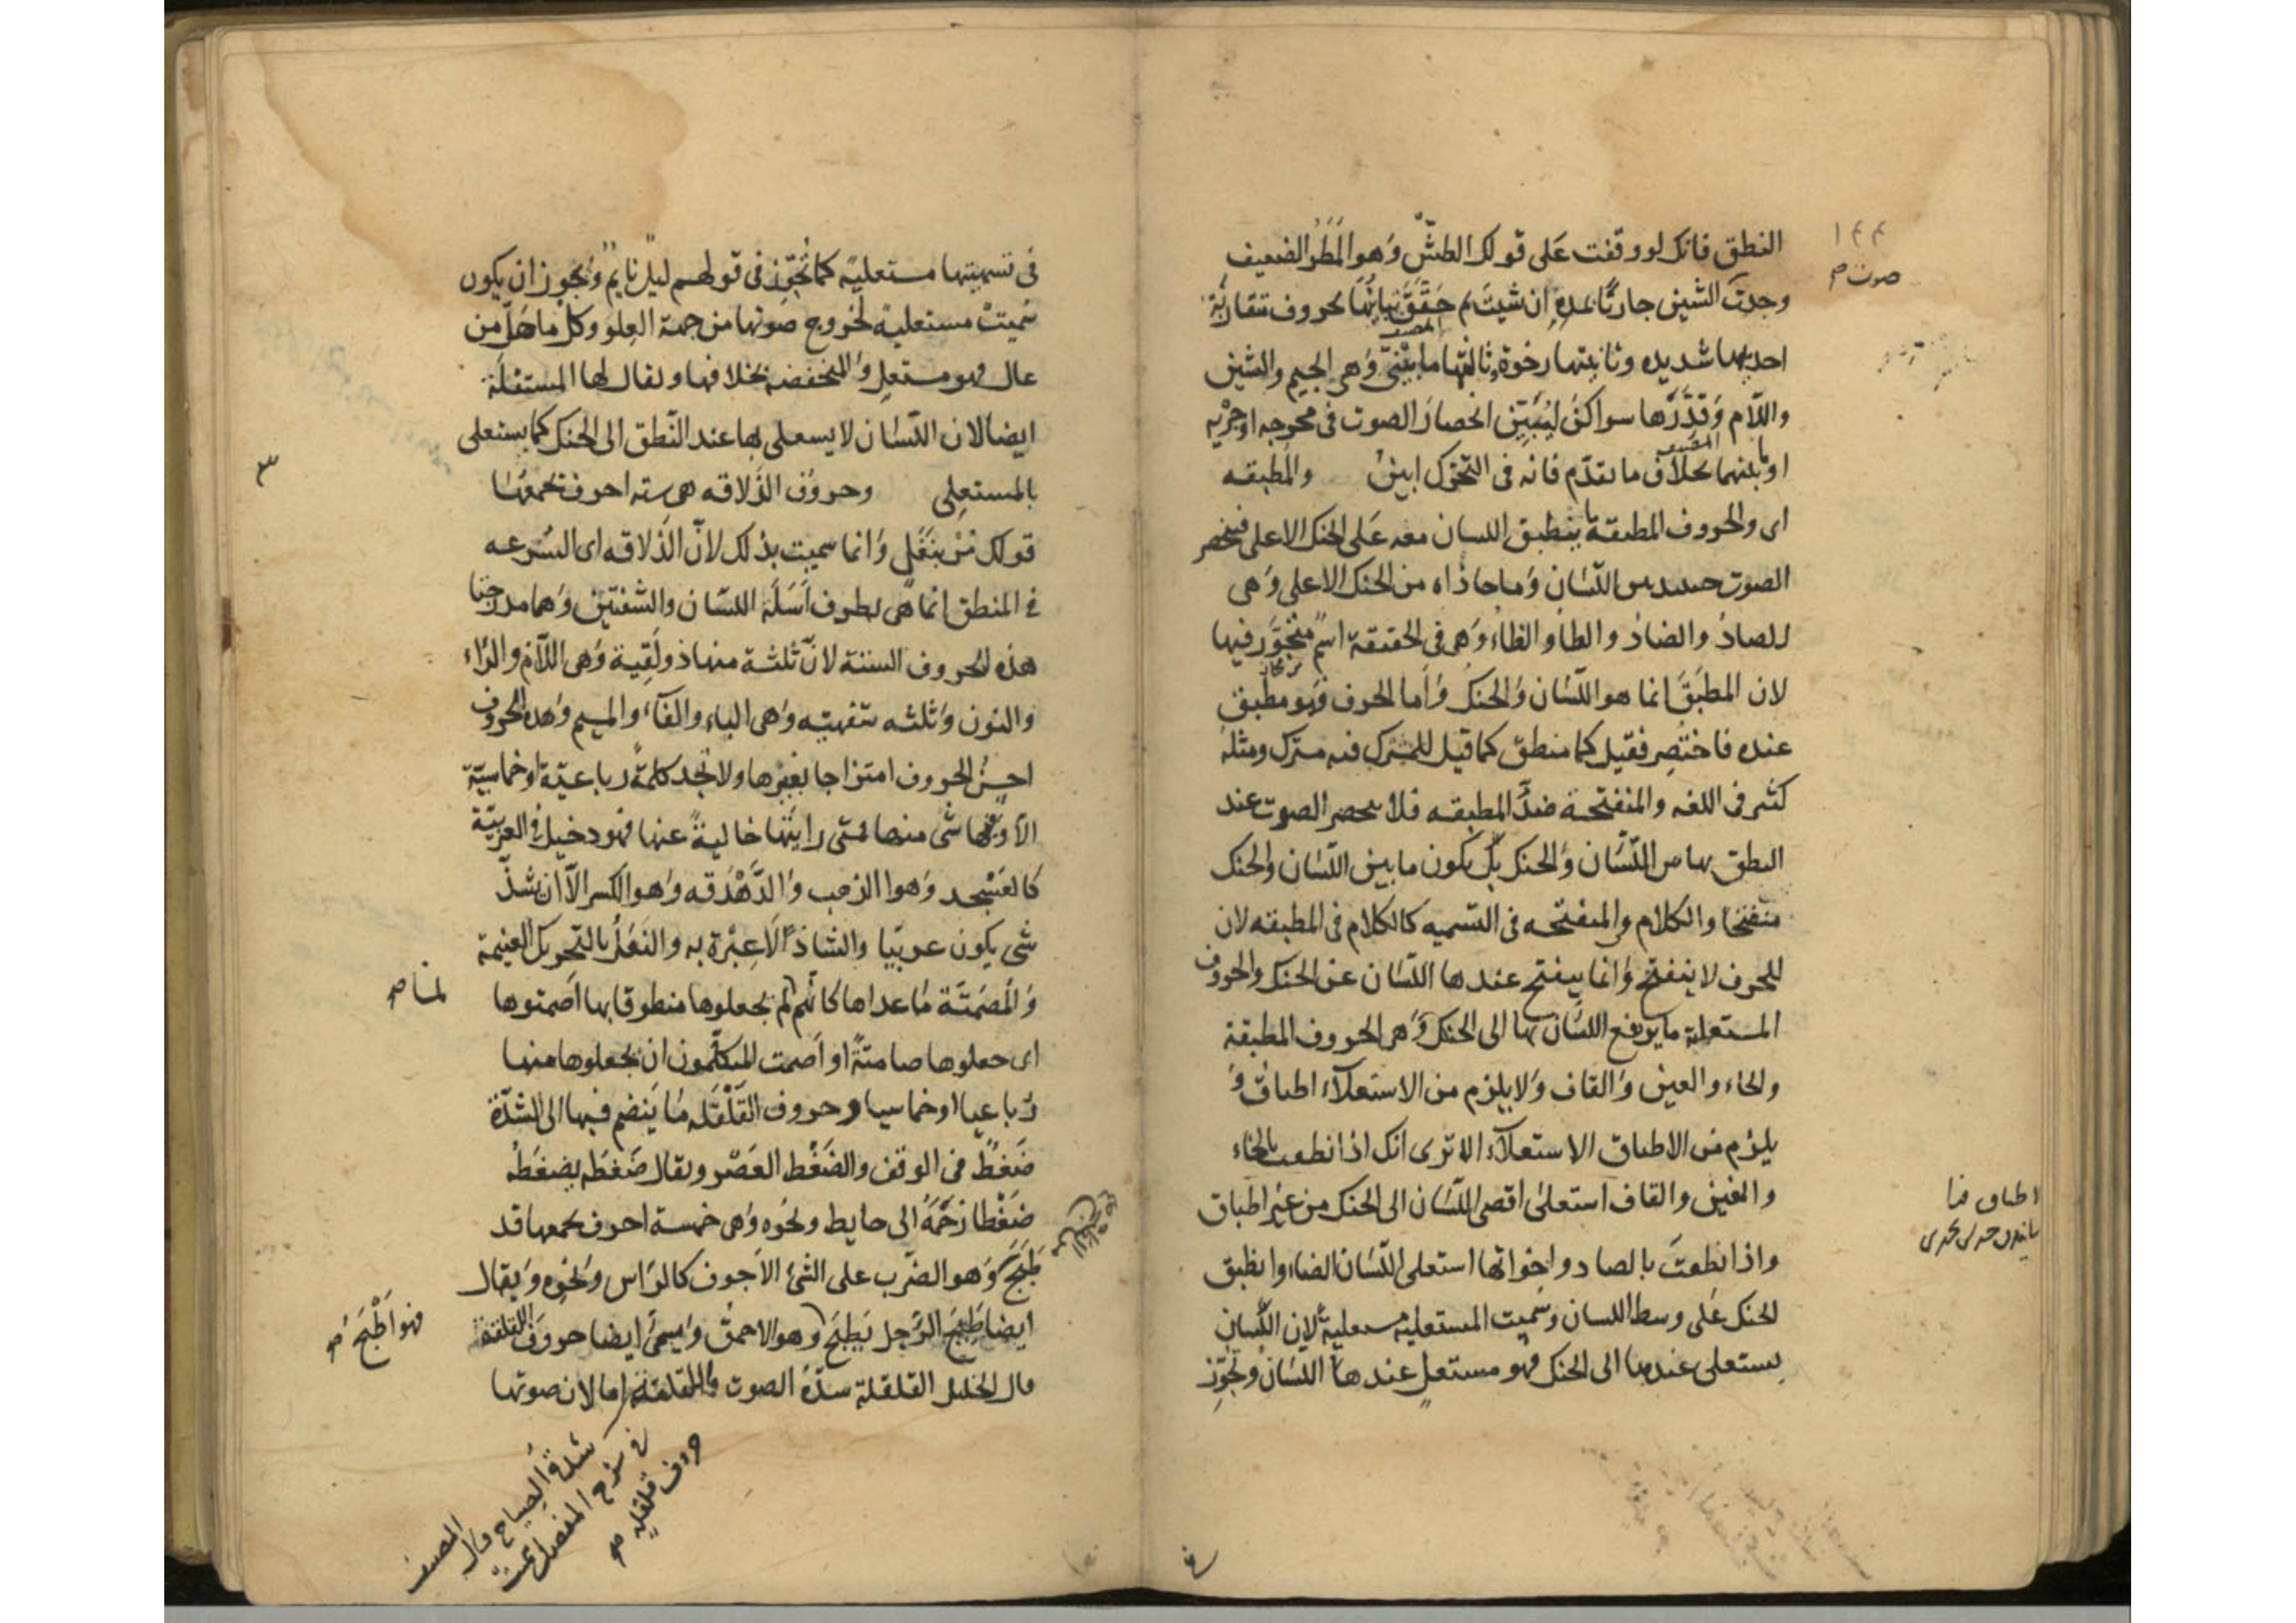 النطق فانك لو وقفت عَلى قولك الطشّ وَهو المَطَر الضعيف
وجدتَ الشين جاريًا تمده ان شيتَ ثم حَقَّقَ تباينها بحروف متقاربة
احديها شديده وثانيتها رخوة وثالثها ما بينهما وَهى الجيم والشين
واللّام وَقدَّرَها سواكنَ ليُبَيّن انحصار الصوت فى مخرجه او جَرْيه
المصنف
او ما بينهما بخلاف ما تقدّم فانه فى التحرّك ابين والمطبقه
المصنف
اى والحروف المطبقة ما ينطبق اللسان معه عَلى الحنك الاعلى فينحصر
الصوت حينيذ بين اللسَان وَما حاذاه من الحنك الاعلى وَهى
الصادُ والضادُ والطاُ والظاء وَهى فى الحقيقة اسمٌ متجوَّز فيها
لان المطبَقَ انما هو اللّسَان وَالحنك وَاما الحرف فهو مطبق
عنده فاختُصِر فقيل كما منطق كما قيل للمشترك فيه مشترك ومثله
كثير فى اللغه والمنفتحة ضدُّ المطبقه فلا ينحصر الصوت عند
النطق بها بين اللّسَان وَالحنك بل يكون ما بين اللسَان والحنك
منفتحا والكلام والمنفتحه فى التسميه كالكلام فى المطبقه لان
الحرف لا ينفتح وَانما ينفتح عندها اللسَان عن الحنك والحروف
المستعلية ما يرتفع اللسَان بها الى الحنك وَهى الحروف المطبقة
والخاء والغين وَالقاف وَلا يلزم من الاستعلآء اطباقٌ وَ
يلزم من الاطباق الاستعلآء الا ترى انك اذا نطقت بالخاء
والغين والقاف استعلىٰ اقصى اللسَان الى الحنك من غير اطباق
واذا نطقتَ بالصاد واخواتها استعلى اللّسَان ايضا وانطبق
الحنك عَلى وسط اللسان وسَميت المستعلية مستعليةً لان اللّسان
يستعلى عندها الى الحنك فهو مستعلٍ عندها اللسَانُ وتُجوّز
١٤٤
صوت صح
اطباق
فى تسميتها مستعليةً كما تُجوّز فى قولهم ليلٌ نايمٌ وَيجوز ان يكون
سُميتْ مستعليةً لخروج صَوتها من جهة العِلو وكل ما حَلَّ من
عالٍ فهو مستعلٍ وَالمنخفضة بخلافها ويقال لها المستفلة
ايضا لان اللسَان لا يستعلى بها عند النّطق الى الحنك كما يستعلى
بالمستعلى وحروُف الذّلاقه هى سته احرف تجمعُها
قولك مُرْ بِنَفَلٍ وَانما سميت بذلك لانّ الذّلاقه اى السُرعه
فى المنطق انما هى بطرف اَسَلَة اللسَان والشفتين وَهما مدرجتا
هذه الحروف الستة لانّ ثلثة منها ذولَقِية وَهى اللّام والرّاء
والنون وَثلثه شفهيّه وَهى الباء والفآء والميم وَهذه الحروف
احسن الحروف امتزاجا بغيرها ولا تجد كلمةً رباعيّة او خماسيّة
الّا وفيها شى منها فمتى رايتَها خاليةً عنها فهو دخيل فى العربيّة
كالعَسْجد وَهو الذهب وَالدَّهْدَقه وَهو الكسر الّا ان شذّ
شى يكون عربيّا والشاذّ لَا عِبْرة به والنَفَلُ بالتحريك الغنيمة
وَالمُصْمَتَة مَا عداها كانّهم لم يجعلوها منطوقا بها اَصمتوها
لمَّا صح
اى جعلوها صامتةً او اَصمت المتكلّمون ان يجعلوها منها
رُباعيا او خماسيا وحروف القَلْقَله مَا يَنضم فيها الى الشدّة
ضَغطٌ فى الوقف والضَغْط العَصْر ويقال ضَغَطَه يضغَطُه
ضَغْطا زحَمَهُ الى حايط ونحوه وَهى خمسة احرف يجمعها قد
طَبَجَ وَهو الضّرب على الشئ الاَجوف كالرّاس وَنحوه وَيقال
ايضا طَبِجَ الرَّجل يَطبَج وهو الاحمقُ وَيسمىٰ ايضا حروفَ اللقلقة
فهو اَطْبَجُ صح
قال الخليل القلقلة شدّة الصوت واللقلقة اما لان صوتها
شدة الصياح وقال المصنف
فى شرح المفصل سميت
حروف قلقلة صح